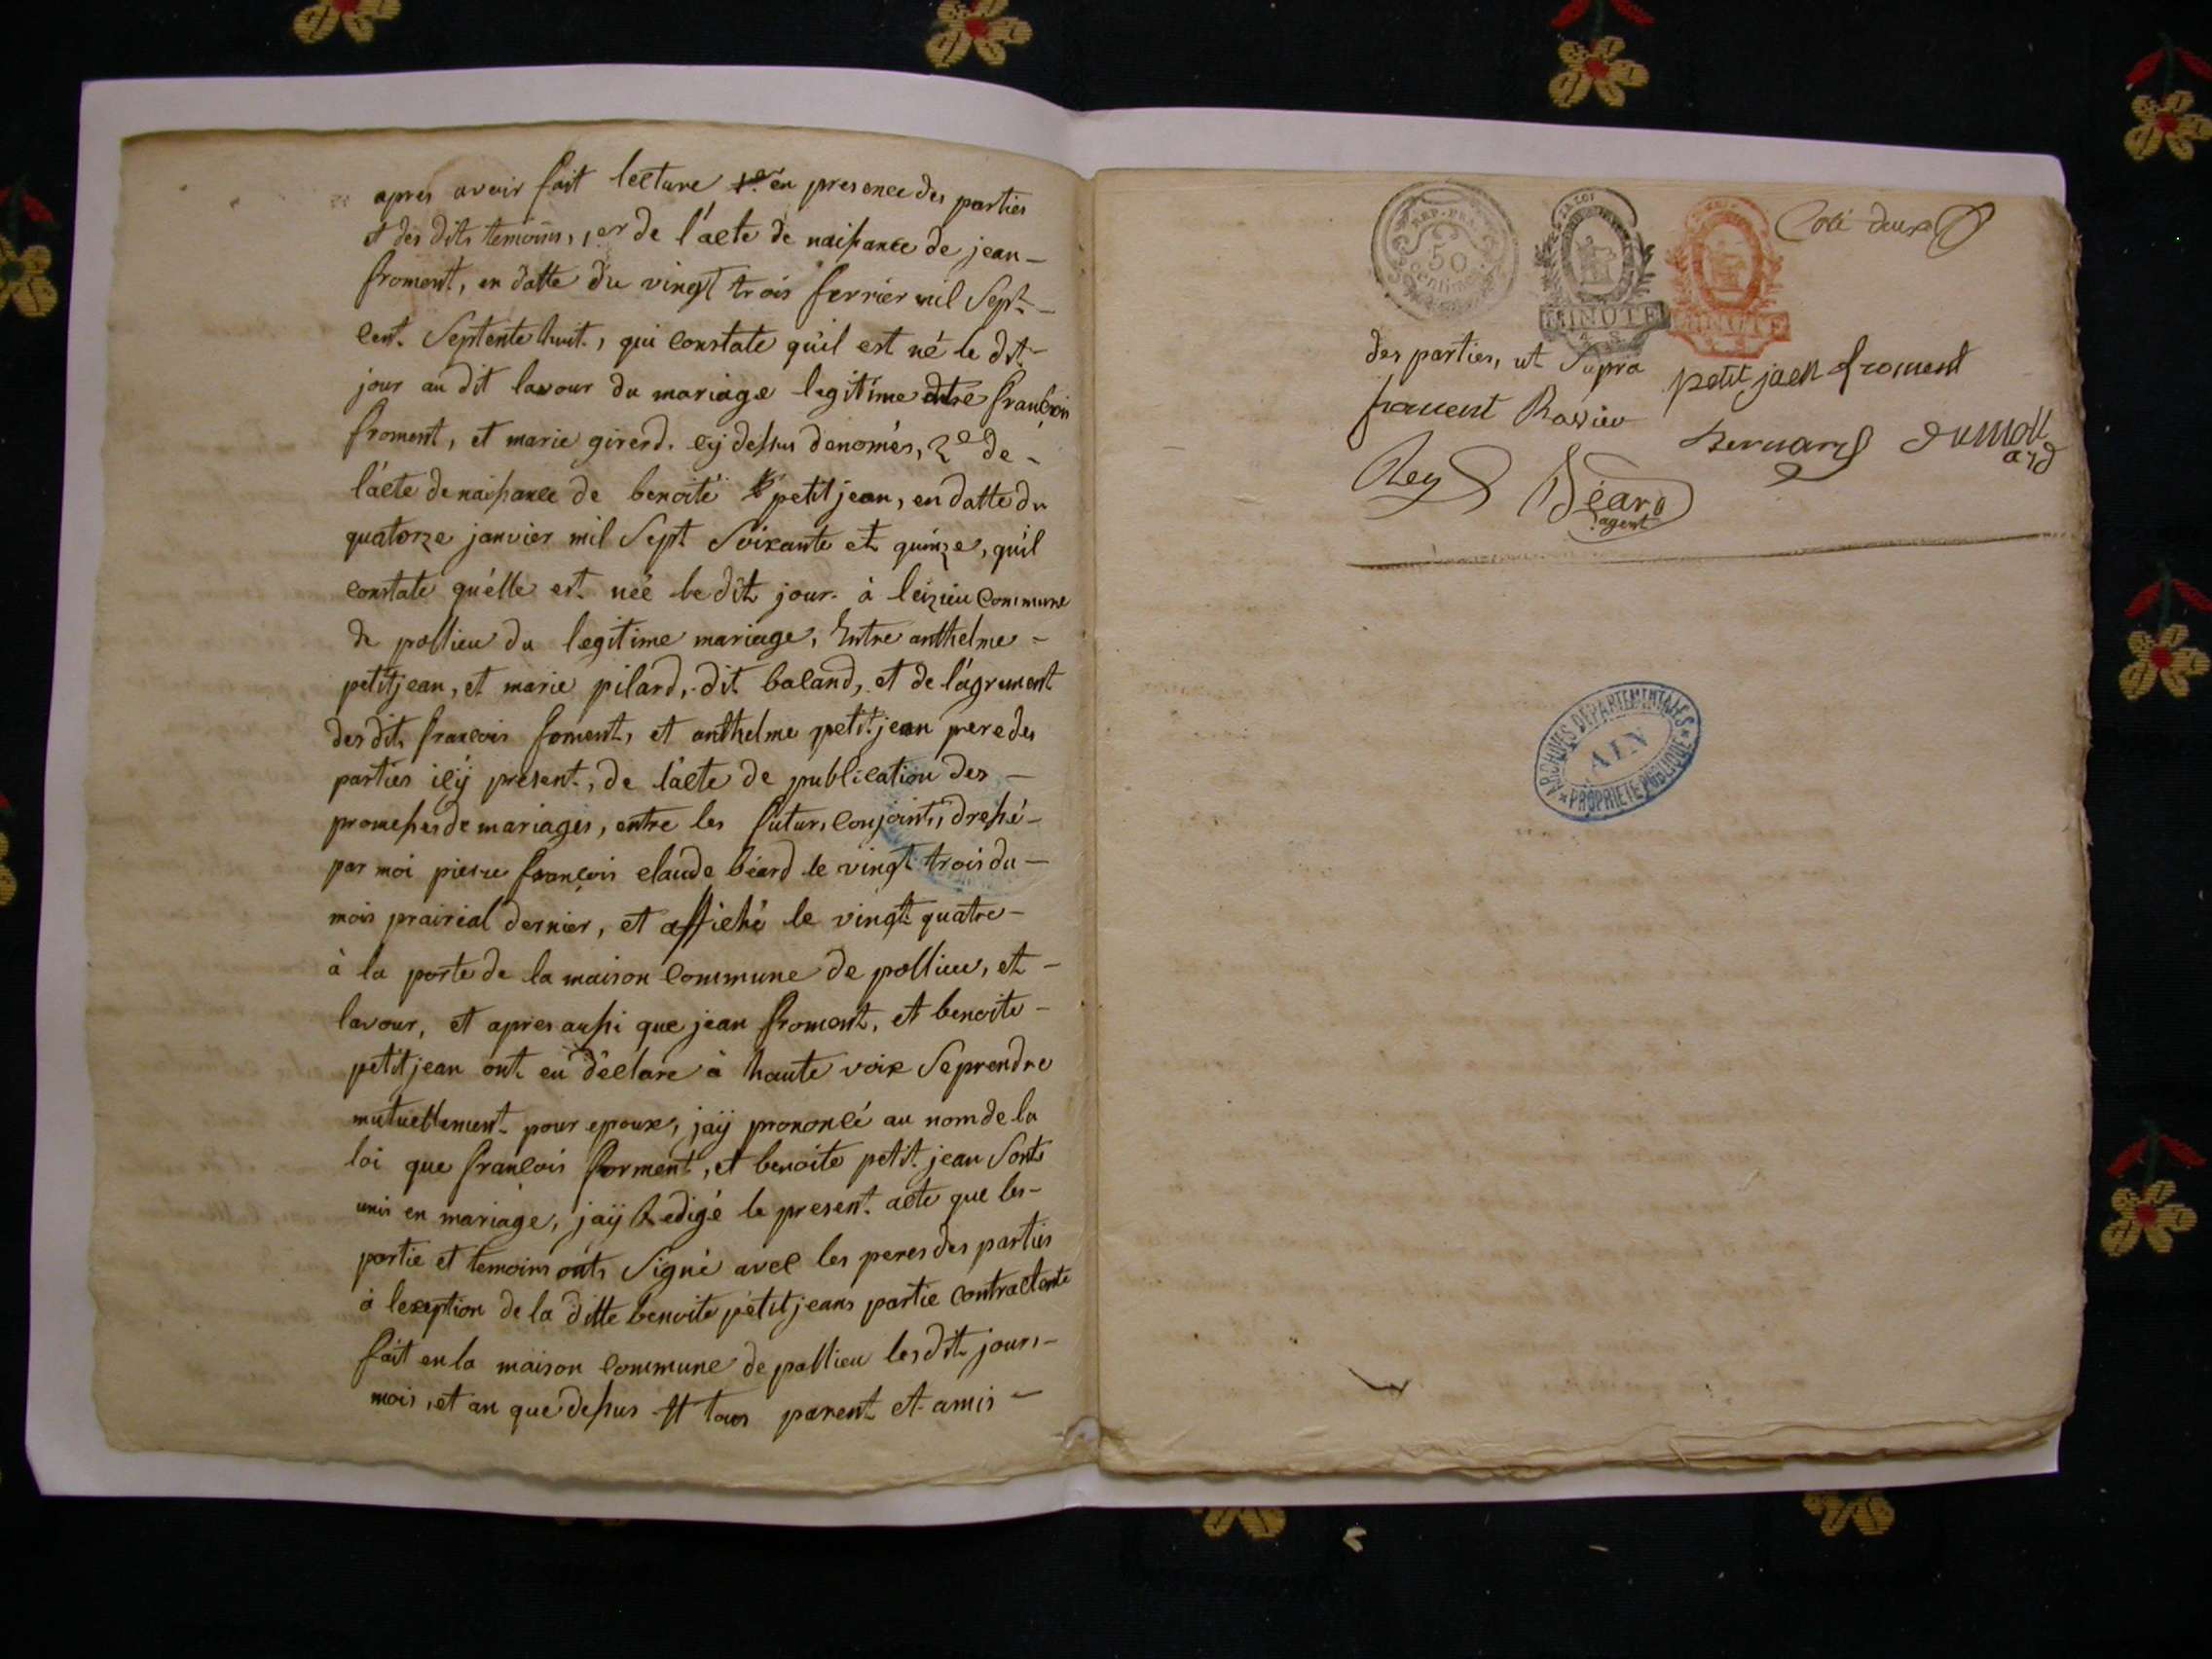 apres avoir fait lecture en presence des parties
et des dits temoins, 1er de l'acte de naissance de jean -
froment, en datte du vingt trois fevrier mil sept -
cent. septente huit, qui constate qu'il est né le dit -
jour au dit lavour du mariage legitime entre francois
froment, et marie girerd. cy dessus denomés, 2e de -
l'acte de naissance de benoité petit jean, en datte du
quatorze janvier mil sept soixante et quinze, qu'il
constate qu'élle est neé le dit jour. à leizieu commune
de pollieu du legitime mariage, Entre anthelme -
petitjean, et marie pilard, dit baland, et de l'agrement
des dits francois foment, et anthelme petit jean pere des
parties icÿ present, de l'acte de publication des -
promesses de mariages, entre les futurs conjoints, dressé -
par moi pierre francois claude béard le vingt trois du -
mois prairéal dernier, et affiché le vingt quatre -
à la porte de la maison commune de pollieu, et -
lavour, et apres aussi que jean froment, et benoite -
petit jean ont eu déclaré à haute voix se prendre
mutuellement pour epoux, jaÿ prononcé au nom de la
loi que francois forment, et benoite petit jean sonts
unis en mariage, jaÿ Redigé le present acte que les -
partie et temoins onts signé avec les peres des parties
à lexeption de la ditte benoite pétit jeans partie contractente
fait en la maison commune de pollieu les dit jours -
mois, et an que dessus et tous parent et amis -
REP. FRA.
50
centimes
LA LOI
MINUTE
MINUTE
Coté deux
des parties, ut Supra petit jaen froment
froment Ravier
Bernard dumollard
Rey Béard
agent
ARCHIVES DEPARTEMENTALES
AIN
PROPRIETE PUBLIQUE